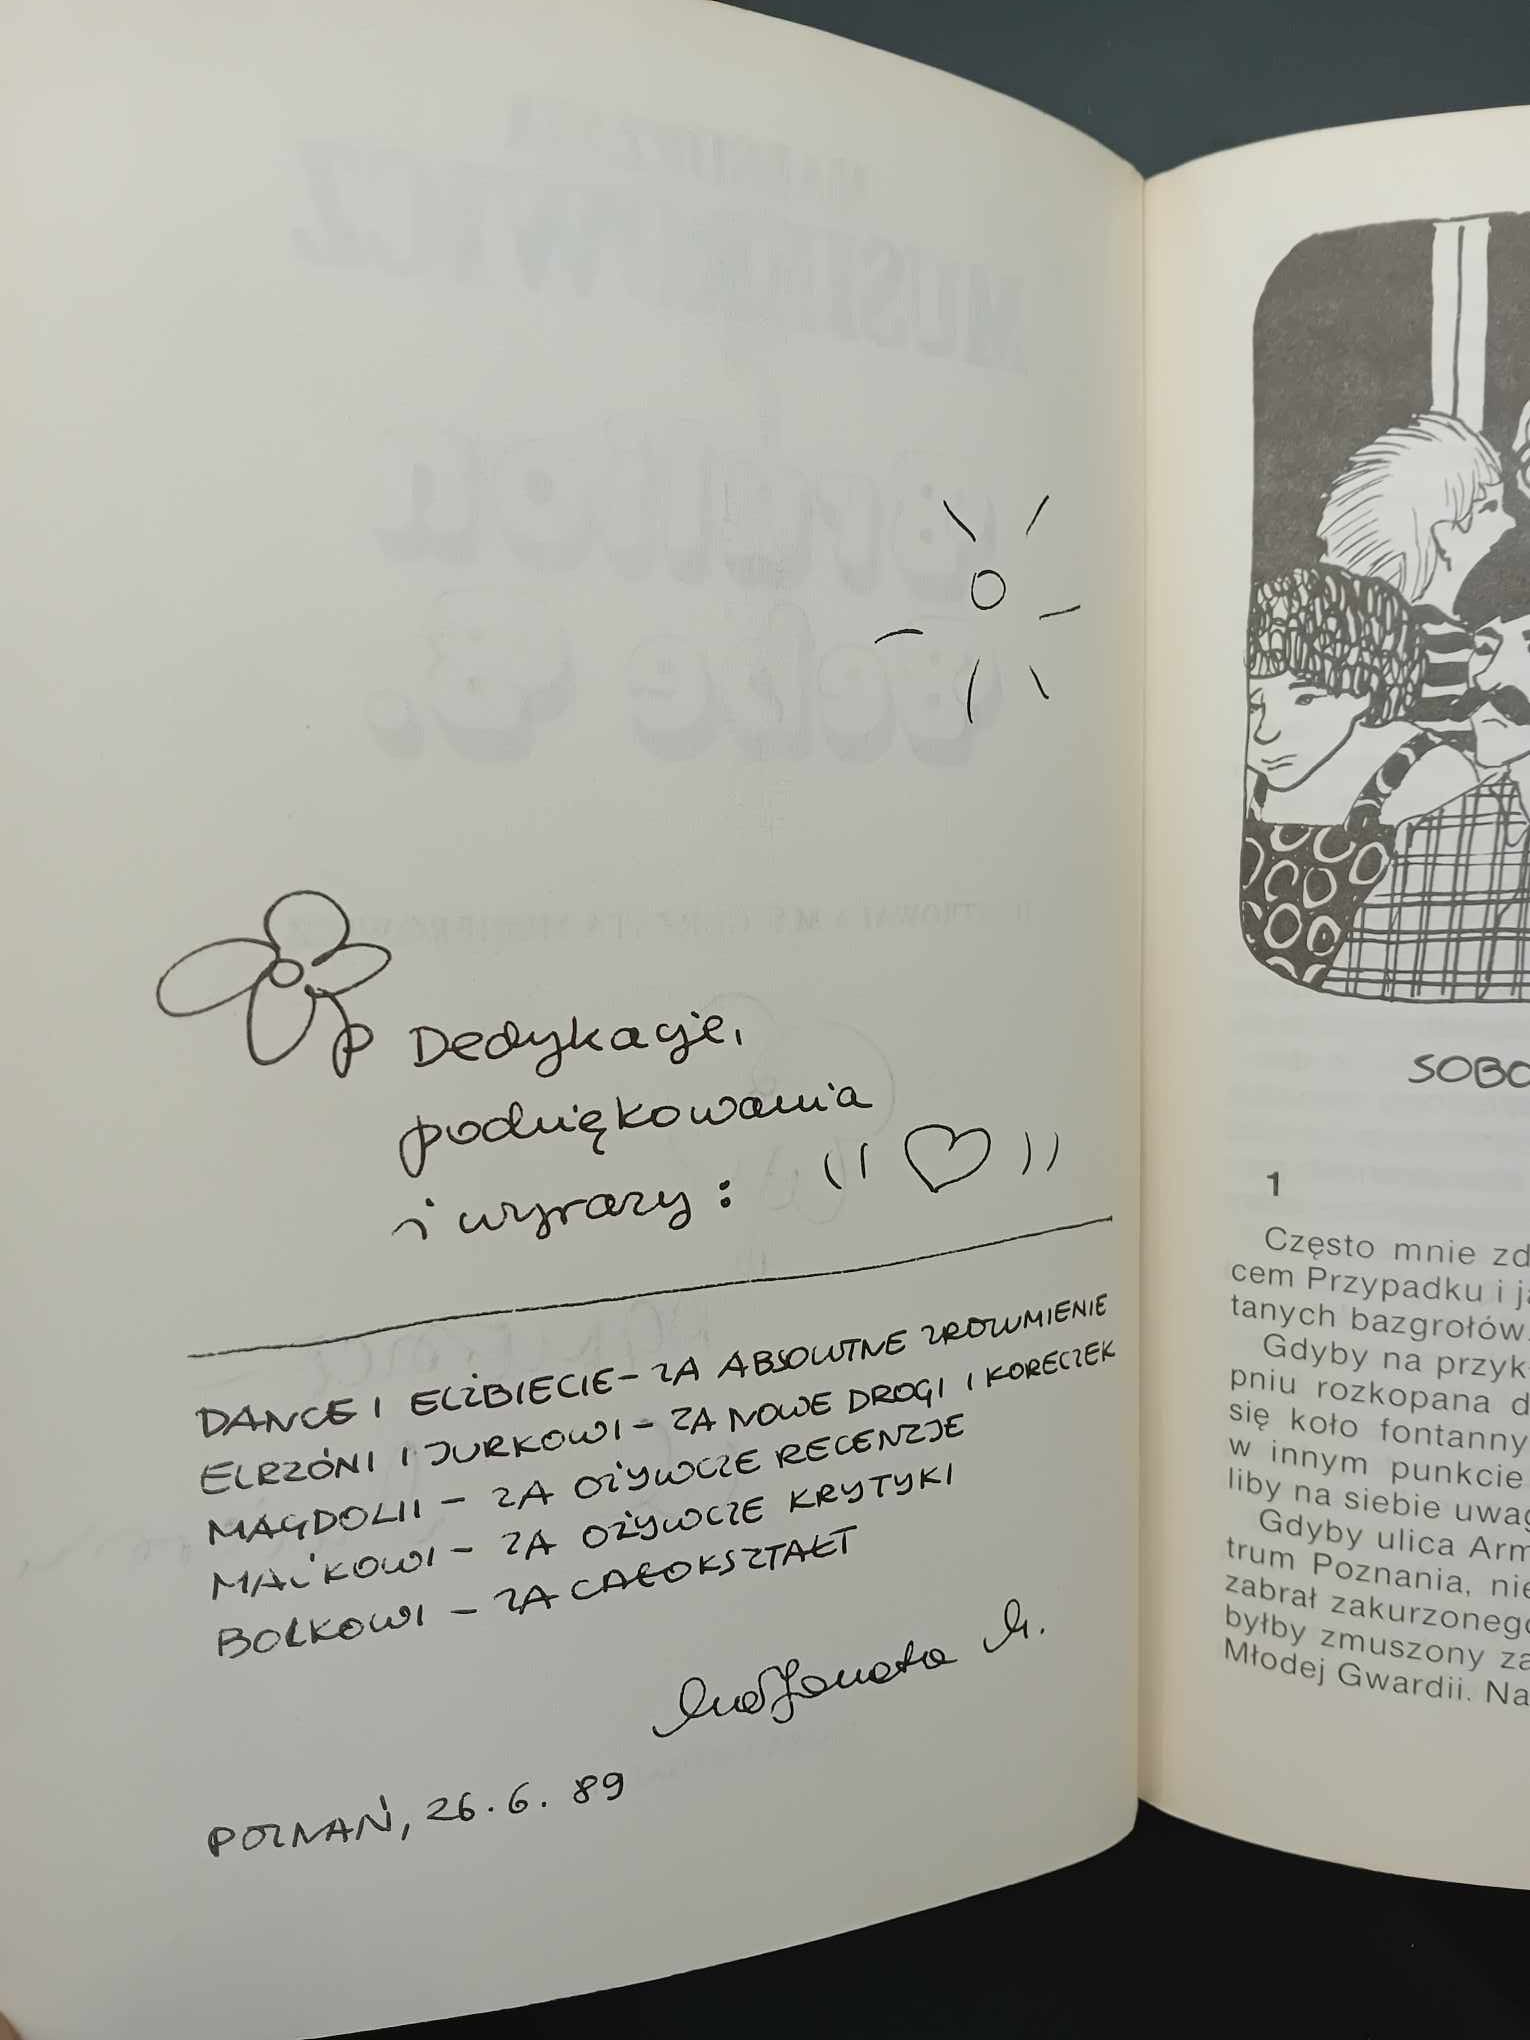 Dedykacje,
podziękowania
i wyrazy:
DANCE I ELŻBIECIE – ZA ABSOLUTNE ZROZUMIENIE
ELRZÓNI I JURKOWI – ZA NOWE DROGI I KORECZEK
MAGDOLII – ZA OŻYWCZE RECENZJE
MAĆKOWI – ZA OŻYWCZE KRYTYKI
BOLKOWI – ZA CAŁOKSZTAŁT
M.
POZNAŃ, 26.6.89
SOBO
1
Często mnie zd
cem Przypadku i ja
tanych bazgrołów.
Gdyby na przyk
pniu rozkopana d
się koło fontanny
w innym punkcie
liby na siebie uwag
Gdyby ulica Arm
trum Poznania, nie
zabrał zakurzonego
byłby zmuszony za
Młodej Gwardii. Na